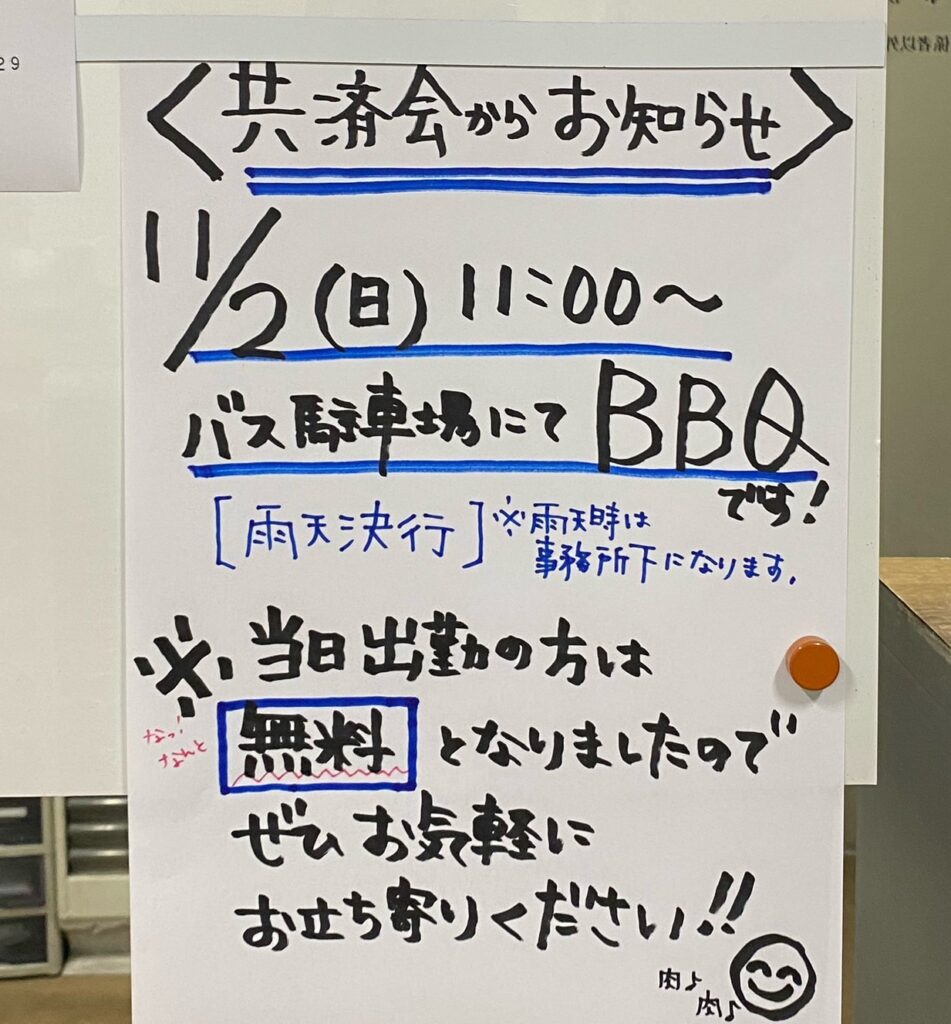 29
係者以外
〈共済会からお知らせ〉
11/2(日) 11:00〜
バス駐車場にて BBQ
です!
[雨天決行] ※雨天時は
事務所下になります。
※ 当日出勤の方は
なっ!
なんと
無料 となりましたので
ぜひ お気軽に
お立ち寄りください!!
肉♪
肉♪